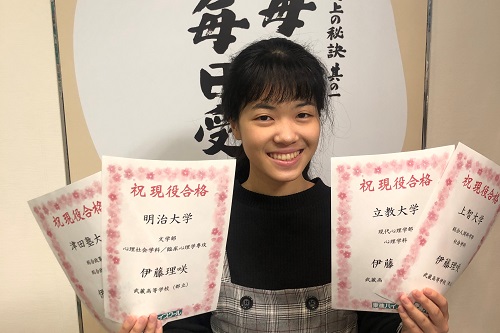 上の秘訣其の一
毎
毎日愛
祝 現役合格
津田塾大
祝 現役合格
明治大学
文学部
心理社会学科／臨床心理学専攻
伊藤理咲
武蔵高等学校（都立）
祝 現役合格
立教大学
現代心理学部
心理学科
伊藤
武蔵高
祝 現役合格
上智大学
伊藤理咲
武蔵高等学校